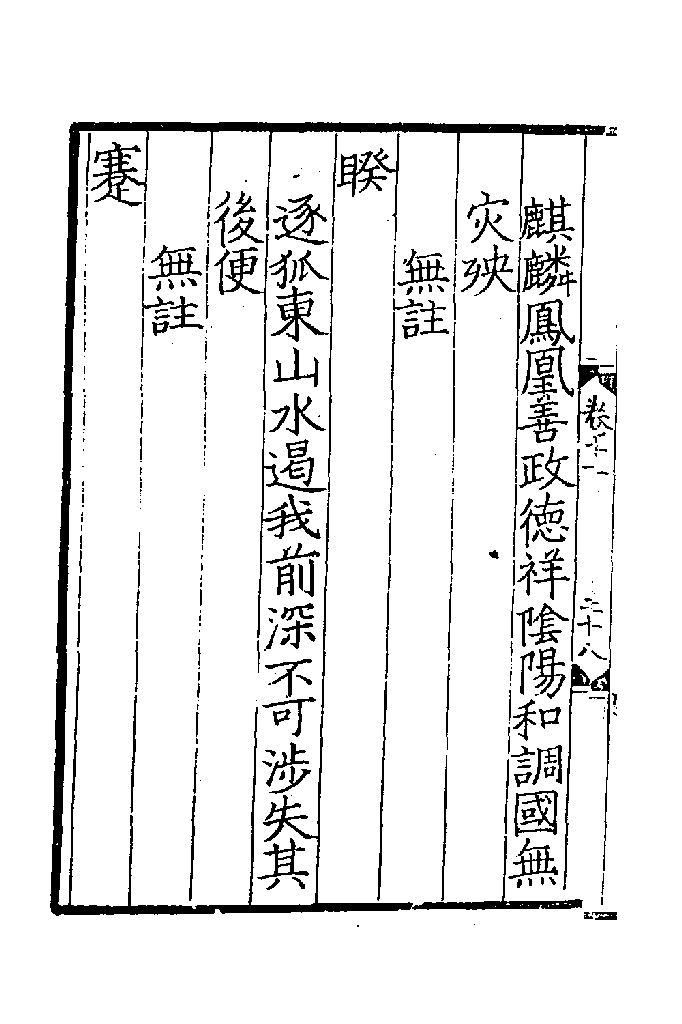 麒麟鳳凰善政德祥陰陽和調國無
灾殃
無註
睽
逐狐東山水遏我前深不可涉失其
後便
無註
蹇
卷十一
三十八